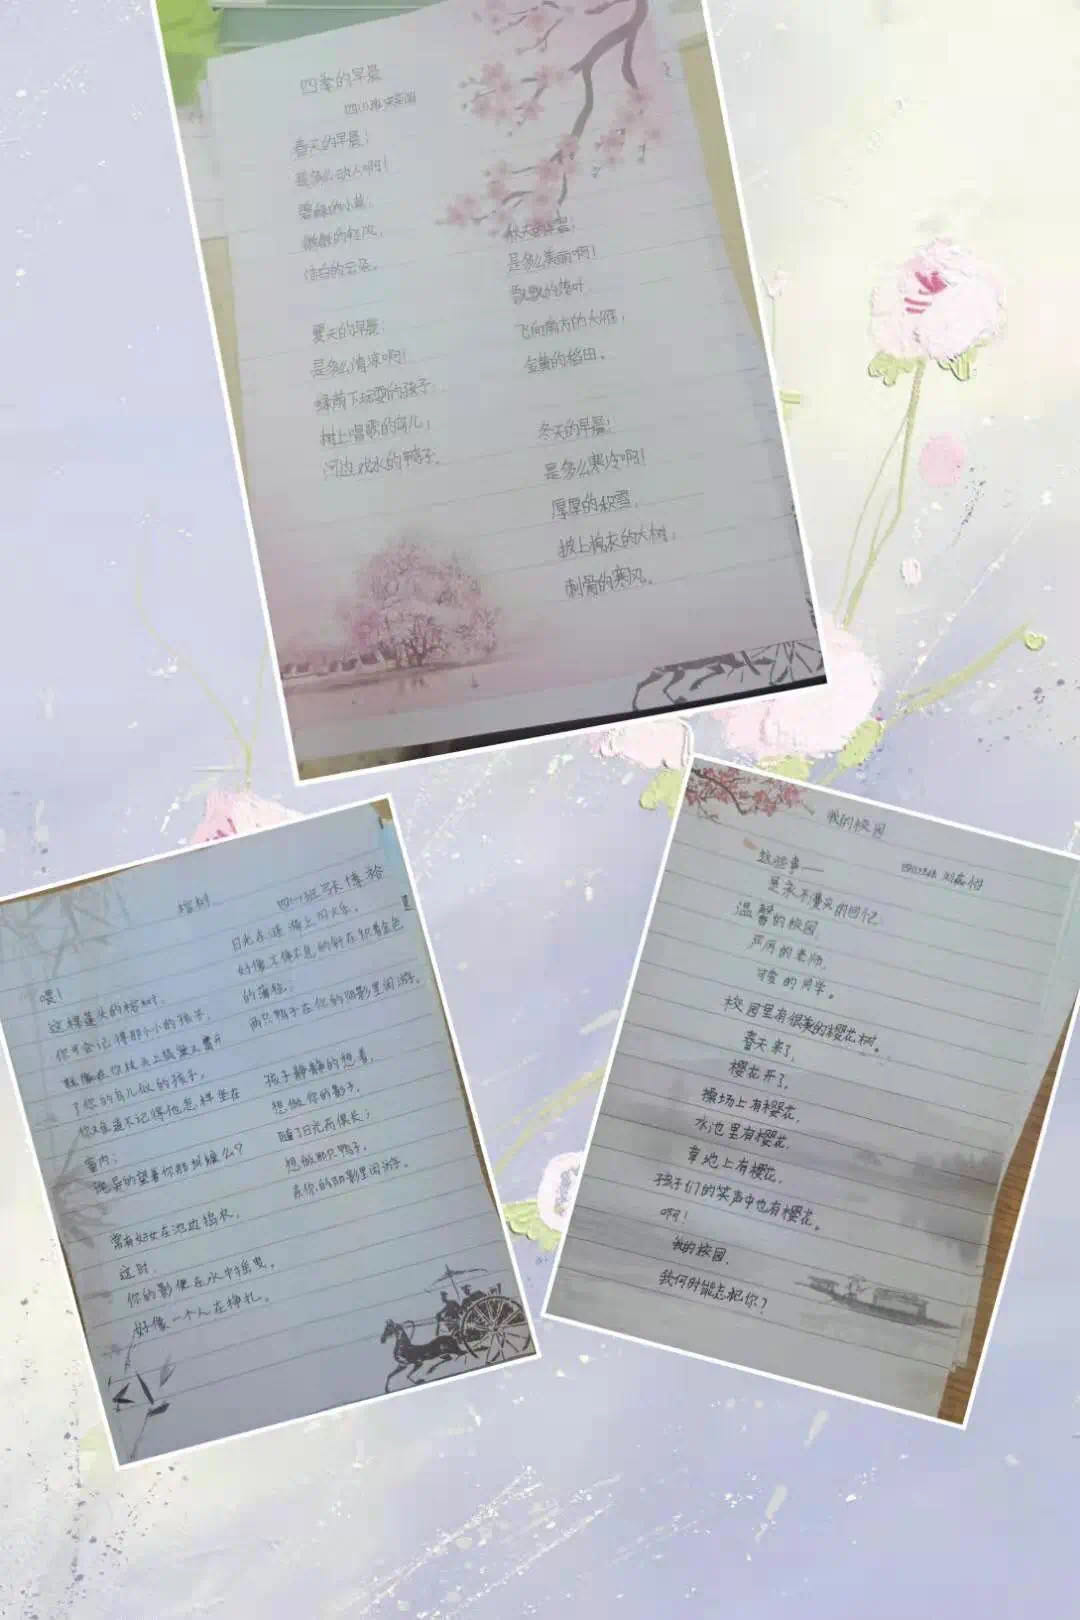 四季的早晨
春天的早晨!
是多么动人啊!
碧绿的小草,
微微的轻风,
洁白的云朵。
夏天的早晨,
是多么清凉啊!
绿荫下玩耍的孩子,
树上唱歌的鸟儿,
河边戏水的鸭子。
秋天的早晨,
是多么美丽啊!
飘飘的落叶,
飞向南方的大雁,
金黄的稻田。
冬天的早晨!
是多么寒冷啊!
厚厚的积雪,
披上棉衣的大树,
刺骨的寒风。
榕树
喂!
这样蓬头的榕树,
你可会记得那个小小的孩子,
就像在你枝头上筑巢又离开
了您的鸟儿似的孩子。
你难道不记得他怎样坐在
窗内;
诧异的望着你
常有妇女在池边捣衣,
这时,
你的影便在水中摇曳,
好像一个人在挣扎。
日光在
好像不停不息的针在织着金色
的薄毯。
两只鸭子在你的阴影里闲游。
孩子静静的想着,
想做你的影子,
随了日光而俱长;
想做那只鸭子,
在你的阴影里闲游。
我的校园
这些事——
是永不
的回忆
温馨的校园,
严厉的老师,
可爱的同学。
校园里有很美的樱花树。
春天来了,
樱花开了,
操场上有樱花,
水池里有樱花,
草地上有樱花,
孩子们的笑声中也有樱花。
啊!
我的校园,
我何时能忘记你?